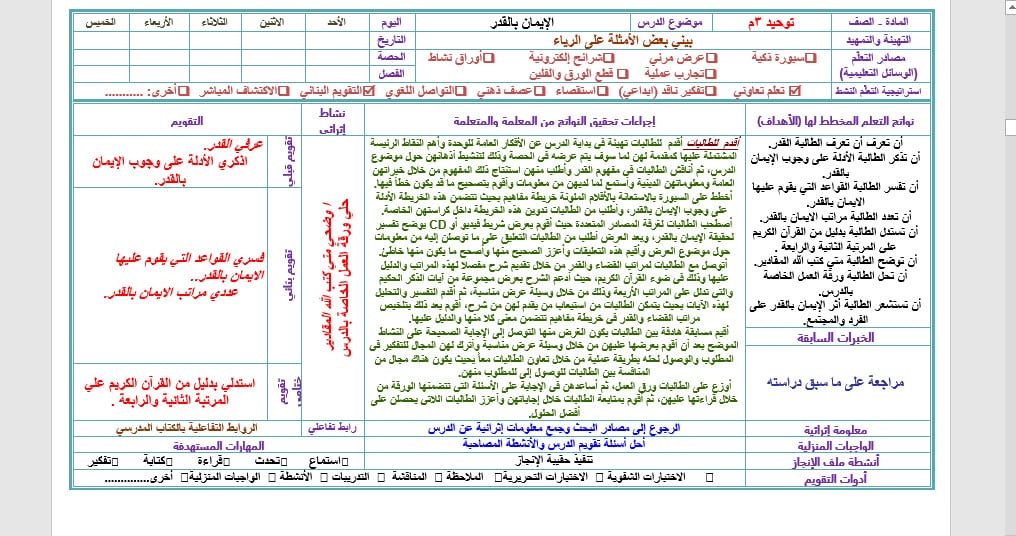 المادة - الصف
توحيد ٣م
موضوع الدرس
الإيمان بالقدر
اليوم
الأحد
الاثنين
الثلاثاء
الأربعاء
الخميس
التهيئة والتمهيد
بيني بعض الأمثلة على الرياء
التاريخ
مصادر التعلم
(الوسائل التعليمية)
سبورة ذكية
عرض مرئي
شرائح إلكترونية
أوراق نشاط
تجارب عملية
قطع الورق والفلين
الحصة
الفصل
استراتيجية التعلم النشط
تعلم تعاوني
تفكير ناقد (ابداعي)
استقصاء
عصف ذهني
التواصل اللغوي
التقويم البنائي
الاكتشاف المباشر
أخرى: ...........
نواتج التعلم المخطط لها (الأهداف)
إجراءات تحقيق النواتج من المعلمة والمتعلمة
نشاط
إثرائي
التقويم
أن تعرف أن تعرف الطالبة القدر.
أن تذكر الطالبة الأدلة على وجوب الإيمان
بالقدر.
أن تفسر الطالبة القواعد التي يقوم عليها
الايمان بالقدر.
أن تعدد الطالبة مراتب الايمان بالقدر.
أن تستدل الطالبة بدليل من القرآن الكريم
على المرتبة الثانية والرابعة .
أن توضح الطالبة متى كتب الله المقادير.
أن تحل الطالبة ورقة العمل الخاصة
بالدرس.
أن تستشعر الطالبة أثر الإيمان بالقدر على
الفرد والمجتمع.
الخبرات السابقة
مراجعة على ما سبق دراسته
أقدم للطالبات أقدم للطالبات تهيئة في بداية الدرس عن الأفكار العامة للوحدة وأهم النقاط الرئيسة
المشتملة عليها كمقدمة لهن لما سوف يتم عرضه في الحصة وذلك لتنشيط أذهانهن حول موضوع
الدرس، ثم أناقش الطالبات في مفهوم القدر وأطلب منهن استنتاج ذلك المفهوم من خلال خبراتهن
العامة ومعلوماتهن الدينية وأستمع لما لديهن من معلومات وأقوم بتصحيح ما قد يكون خطأ فيها.
أخطط على السبورة بالاستعانة بالأقلام الملونة خريطة مفاهيم بحيث تتضمن هذه الخريطة الأدلة
على وجوب الإيمان بالقدر، وأطلب من الطالبات تدوين هذه الخريطة داخل كراستهن الخاصة.
أصطحب الطالبات لغرفة المصادر المتعددة حيث أقوم بعرض شريط فيديو أو CD يوضح تفسير
لحقيقة الإيمان بالقدر، وبعد العرض أطلب من الطالبات التعليق على ما توصلن إليه من معلومات
حول موضوع العرض وأقيم هذه التعليقات وأعزز الصحيح منها وأصحح ما يكون منها خاطئ.
أتوصل مع الطالبات لمراتب القضاء والقدر من خلال تقديم شرح مفصلا لهذه المراتب والدليل
عليها وذلك في ضوء القرآن الكريم، حيث أدعم الشرح بعرض مجموعة من آيات الذكر الحكيم
والتي تدلل على المراتب الأربعة وذلك من خلال وسيلة عرض مناسبة، ثم أقدم التفسير والتحليل
لهذه الآيات بحيث يتمكن الطالبات من استيعاب ما يقدم لهن من شرح، أقوم بعد ذلك بتلخيص
مراتب القضاء والقدر في خريطة مفاهيم تتضمن معنى كلا منها والدليل عليها.
أقيم مسابقة هادفة بين الطالبات يكون الغرض منها التوصل إلى الإجابة الصحيحة على النشاط
الموضح بعد أن أقوم بعرضها عليهن من خلال وسيلة عرض مناسبة وأترك لهن المجال للتفكير في
المطلوب والوصول لحله بطريقة عملية من خلال تعاون الطالبات معاً بحيث يكون هناك مجال من
المنافسة بين الطالبات للوصول إلى للمطلوب منهن.
أوزع على الطالبات ورق العمل، ثم أساعدهن في الإجابة على الأسئلة التي تتضمنها الورقة من
خلال قراءتها عليهن، ثم أقوم بمتابعة الطالبات خلال إجاباتهن وأعزز الطالبات اللاتي يحصلن على
أفضل الحلول.
حلي ورقة العمل الخاصة بالدرس
/ وضحي متى كتب الله المقادير
تقويم قبلي
عرفي القدر.
اذكري الأدلة على وجوب الإيمان
بالقدر.
تقويم بنائي
فسري القواعد التي يقوم عليها
الايمان بالقدر..
عددي مراتب الايمان بالقدر.
تقويم ختامي
استدلي بدليل من القرآن الكريم علي
المرتبة الثانية والرابعة .
معلومة إثرائية
الرجوع إلى مصادر البحث وجمع معلومات إثرائية عن الدرس
رابط تفاعلي
الروابط التفاعلية بالكتاب المدرسي
الواجبات المنزلية
أحل أسئلة تقويم الدرس والأنشطة المصاحبة
المهارات المستهدفة
أنشطة ملف الإنجاز
تنفيذ حقيبة الإنجاز
استماع
تحدث
قراءة
كتابة
تفكير
أدوات التقويم
الاختبارات الشفوية
الاختبارات التحريرية
الملاحظة
المناقشة
التدريبات
الأنشطة
الواجبات المنزلية
أخرى..............